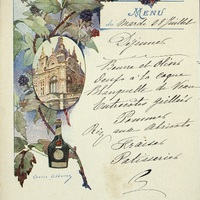 MENU
du Mardi 28 Juillet
Déjeuner
Beurre et Olives
Oeufs à la coque
Blanquette de Veau
Entrecôtes grillées
Pommes
Riz aux abricots
Fraises
Patisseries